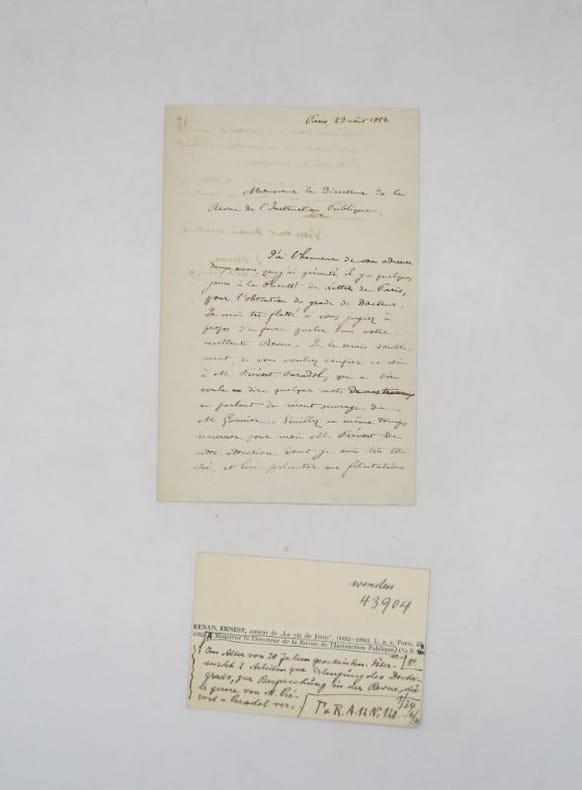 Paris, 23 août 1852
Monsieur le Directeur de la
Revue de l'Instruction Publique,
J'ai l'honneur de vous adresser
deux essais que j'ai présenté il y a quelques
jours à la Faculté des Lettres de Paris,
pour l'obtention du grade de Docteur.
Je serais très flatté si vous jugiez à
propos d'en faire parler dans votre
excellente Revue. Je le serais double-
ment, si vous vouliez confier ce soin
à M. Prévost-Paradol, qui a bien
voulu dire quelques mots de mes travaux
en parlant du récent ouvrage de
M. Garnier. Veuillez en même temps
remercier pour moi M. Prévost de
cette attention dont je suis très
et lui présenter mes félicitations
wenden
43904
RENAN, ERNEST, auteur de „La vie de Jésus", (1823–1892). L. a. s. Paris,
A Monsieur le Directeur de la Revue de l'Instruction Publique.
Im Alter von 29 Jahren geschrieben. Über-
sendet 2 Arbeiten zur Erlangung des Doctor-
grads, zur Besprechung in der Revue, die
er gerne von M. Pré-
vost-Paradol